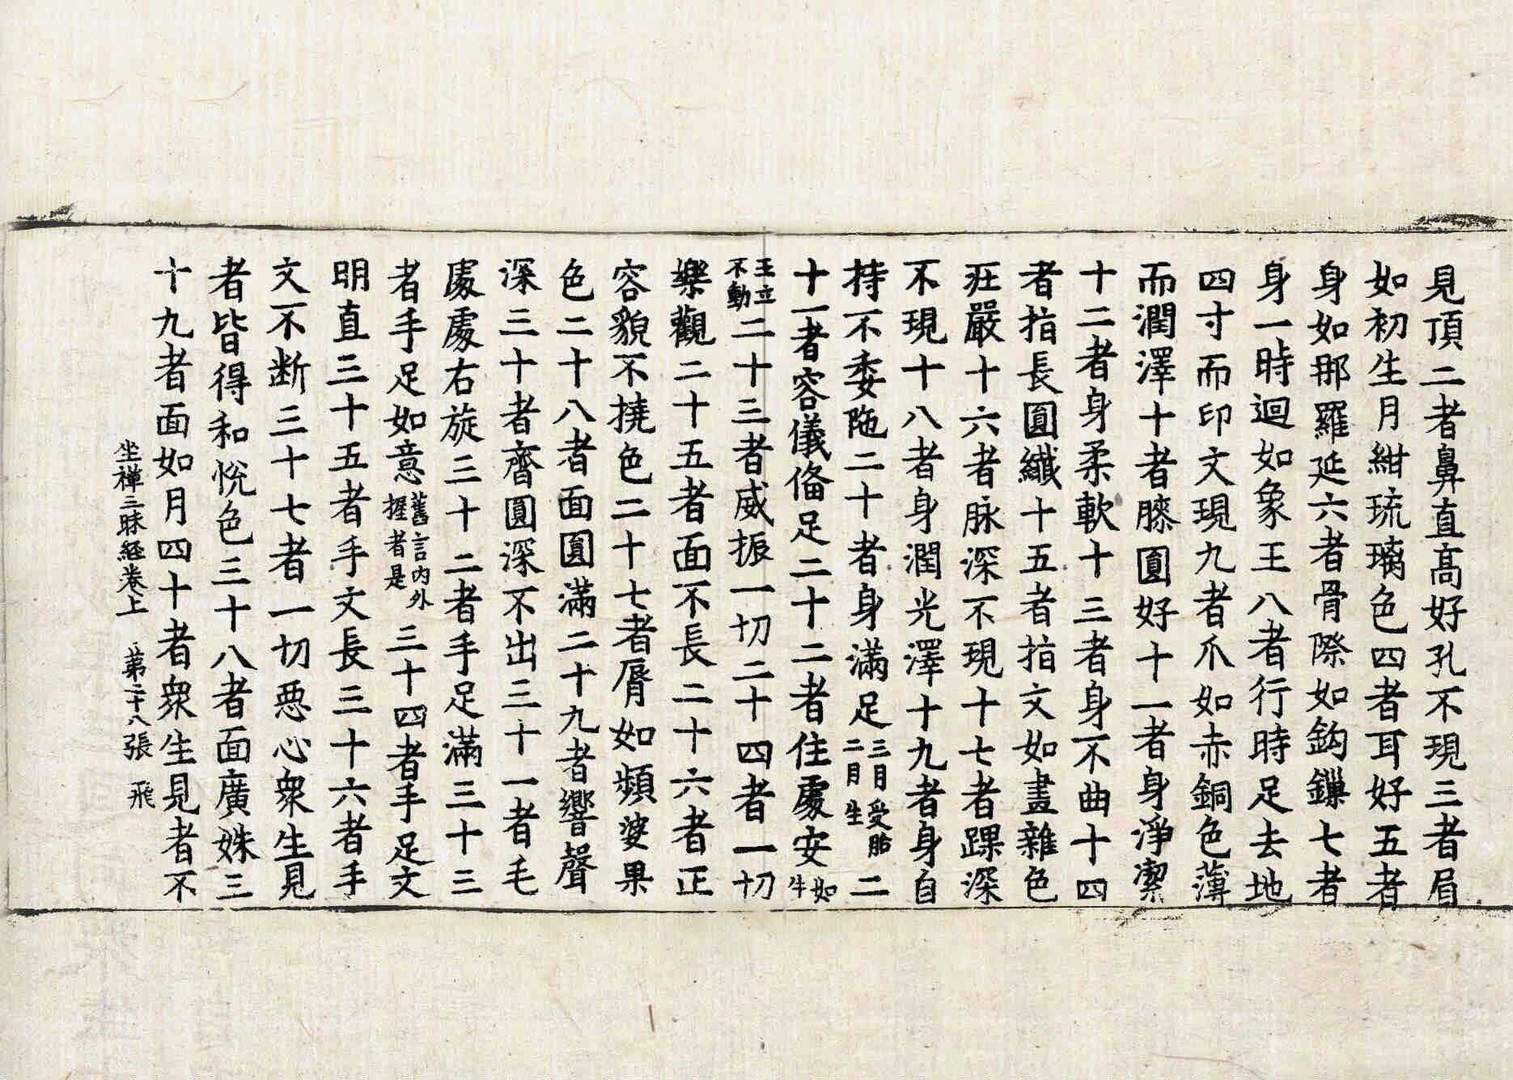 見頂二者鼻直髙好孔不現三者眉
如初生月紺琉璃色四者耳好五者
身如那羅延六者骨際如鈎鏁七者
身一時迴如象王八者行時足去地
四寸而印文現九者爪如赤銅色薄
而潤澤十者膝圓好十一者身淨潔
十二者身柔軟十三者身不曲十四
者指長圓纎十五者指文如畫雜色
莊嚴十六者脉深不現十七者踝深
不現十八者身潤光澤十九者身自
持不委陁二十者身滿足三月受胎二月生二
十一者容儀俻足二十二者住處安如牛
王立不動二十三者威振一切二十四者一切
樂觀二十五者面不長二十六者正
容貌不撓色二十七者脣如頻婆果
色二十八者面圓滿二十九者響聲
深三十者齊圓深不出三十一者毛
處處右旋三十二者手足滿三十三
者手足如意舊言內外握者是三十四者手足文
明直三十五者手文長三十六者手
文不断三十七者一切惡心衆生見
者皆得和悅色三十八者面廣姝三
十九者面如月四十者衆生見者不
坐禪三昧経卷上 第二十八張 飛